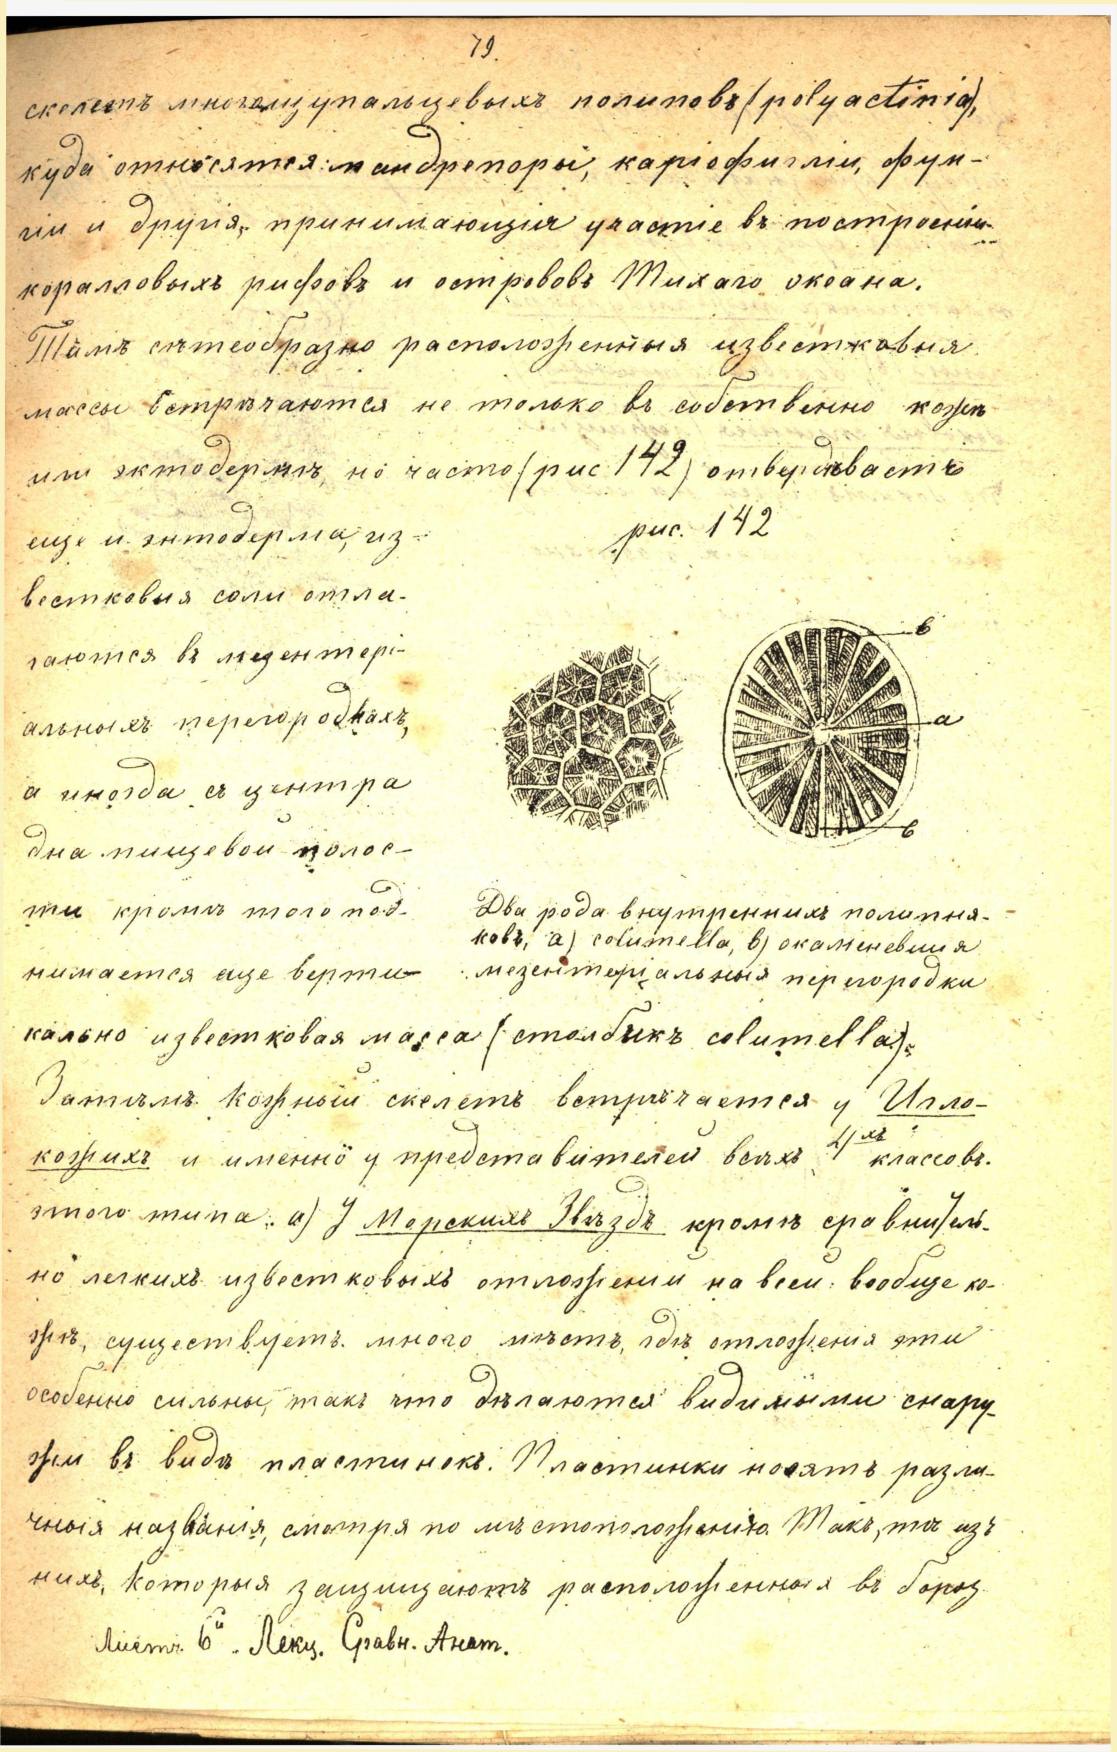 79.
скелетъ многощупальцевыхъ полиповъ (polyactinia),
куда относятся: мандрепоры, каріофилліи, фун-
гіи и другія, принимающія участіе въ построеніи
коралловыхъ рифовъ и острововъ Тихаго океана.
сѣтеобразно расположенныя известковыя
массы встрѣчаются не только въ собственно кожѣ
или эктодермѣ, но часто (рис 142) отвердѣваетъ
еще и энтодерма, из-
вестковыя соли отла-
гаются въ мезентері-
альныхъ перегородкахъ,
а иногда съ центра
дна пищевой полос-
ти кромѣ того под-
нимается еще верти-
рис. 142
в
а
в
Два рода внутреннихъ полипня-
ковъ, а) columella, в) окаменевшія
мезентеріальныя перегородки
кально известковая масса (столбикъ columella).
Затѣмъ кожный скелетъ встрѣчается у Игло-
кожихъ и именно у представителей всѣхъ 4хъ классовъ.
этого типа. а) У Морскихъ Звѣздъ кромѣ сравнитель-
но легкихъ известковыхъ отложеній на всей вообще ко-
жѣ, существуетъ много мѣстъ, гдѣ отложенія эти
особенно сильны, такъ что дѣлаются видимыми снару-
жи въ видѣ пластинокъ. Пластинки носятъ разли-
чныя названія, смотря по мѣстоположенію. Такъ, тѣ изъ
нихъ, которыя защищаютъ расположенныя въ бороз
Листъ 6й. Лекц. Сравн. Анат.